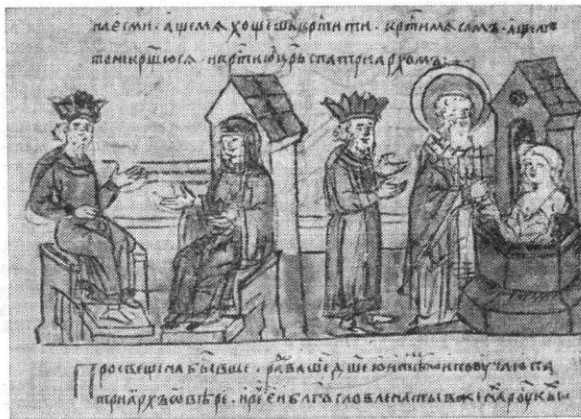 на есми · аще мѧ хощеши крⷭтити · крⷭти мѧ самъ · аще ли
то не крⷭщюсѧ · и крⷭти црⷭь с патриархомъ
Просвещена бывше · радоваше дшею и поучаю па
триархъ ѡ вѣре · и реⷱ еи блгословена ты в женаⷯ рускыⷯ